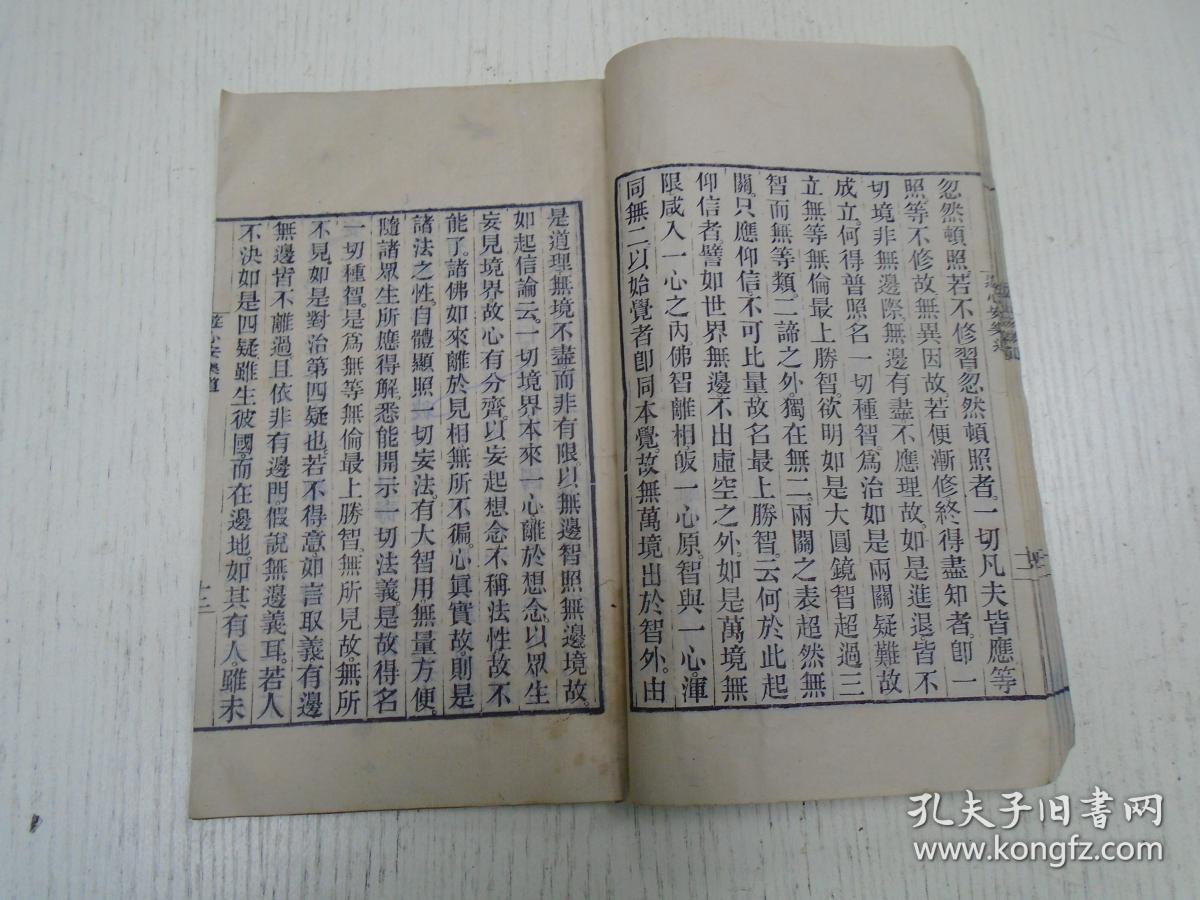 忽然頓照。若不修習忽然頓照者。一切凡夫皆應等
照。等不修故。無異因故。若便漸修終得盡知者。卽一
切境非無邊際。無邊有盡不應理故。如是進退皆不
成立。何得普照名一切種智。爲治如是兩關疑難。故
立無等無倫最上勝智。欲明如是大圓鏡智超過三
智而無等類。二諦之外。獨在無二。兩關之表超然無
關。只應仰信不可比量。故名最上勝智。云何於此起
仰信者。譬如世界無邊不出虛空之外。如是萬境無
限咸入一心之內。佛智離相。皈一心原。智與一心。渾
同無二。以始覺者卽同本覺。故無萬境出於智外。由
是道理無境不盡而非有限。以無邊智照無邊境故。
如起信論云。一切境界本來一心離於想念。以眾生
妄見境界故心有分齊。以妄起想念不稱法性故不
能了。諸佛如來離於見相無所不徧。心眞實故。則是
諸法之性。自體顯照一切妄法。有大智用。無量方便。
隨諸眾生所應得解。悉能開示一切法義。是故得名
一切種智。是爲無等無倫最上勝智。無所見故。無所
不見。如是對治第四疑也。若不得意。如言取義。有邊
無邊皆不離過。且依非有邊門假說無邊義耳。若人
不決如是四疑。雖生彼國。而在邊地。如其有人。雖未
遊心安樂道
十二
孔夫子旧书网
www.kongfz.com